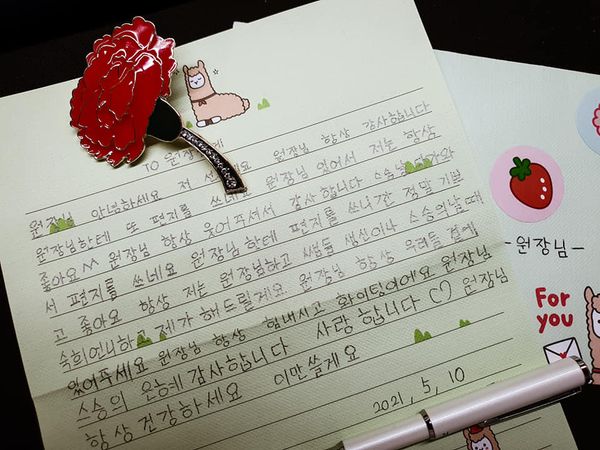 TO 원장
원장님 안녕하세요 저 세요 원장님 항상 감사합니다
원장님한테 또 편지를 쓰네요 원장님 있어서 저는 항상
좋아요^^ 원장님 항상 웃어주셔서 감사합니다 스승날 다가와
서 편지를 쓰네요 원장님한테 편지를 쓰니깐 정말 기쁘
고 좋아요 항상 저는 원장님하고 쌤들 생신이나 스승의날때
숙희언니하고 제가 해드릴게요 원장님 항상 우리들 곁에
있어주세요 원장님 항상 힘내시고 화이팅이에요 원장님
스승의 은혜 감사합니다 사랑합니다 원장님
항상 건강하세요 이만쓸게요
2021, 5, 10
-원장님-
For
you